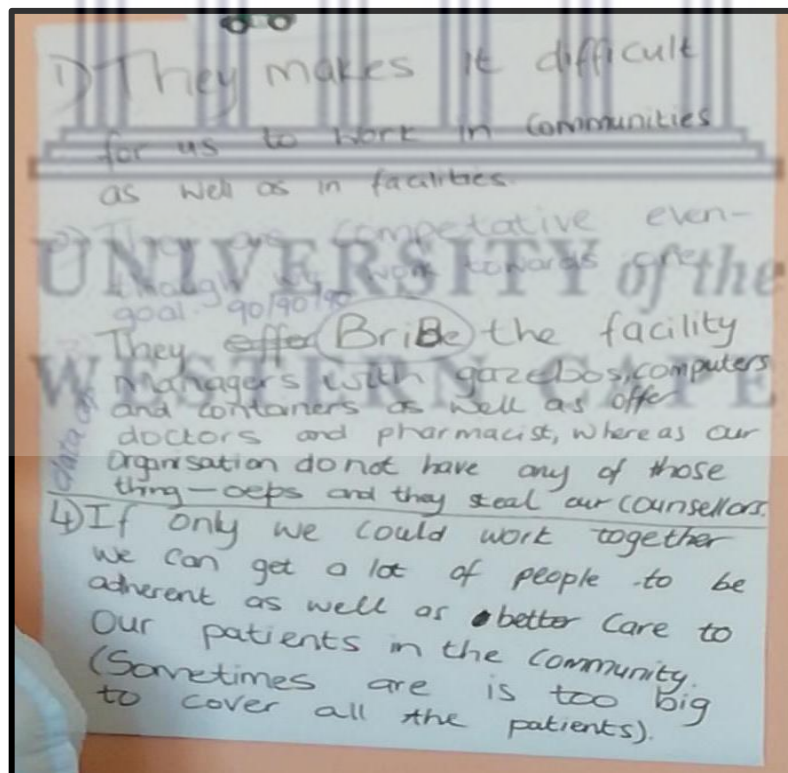 1) They makes it difficult
for us to work in communities
as well as in facilities.
They are competative even-
though we work towards one
goal. 90/90/90
They effer BriBe the facility
managers with gazebos, computers
and containers as well as offer
doctors and pharmacist, where as our
organisation do not have any of those
thing - oeps and they steal our counsellors.
data
4) If only we could work together
we can get a lot of people to be
adherent as well as better care to
our patients in the community.
(Sometimes are is too big
to cover all the patients).
UNIVERSITY of the
WESTERN CAPE